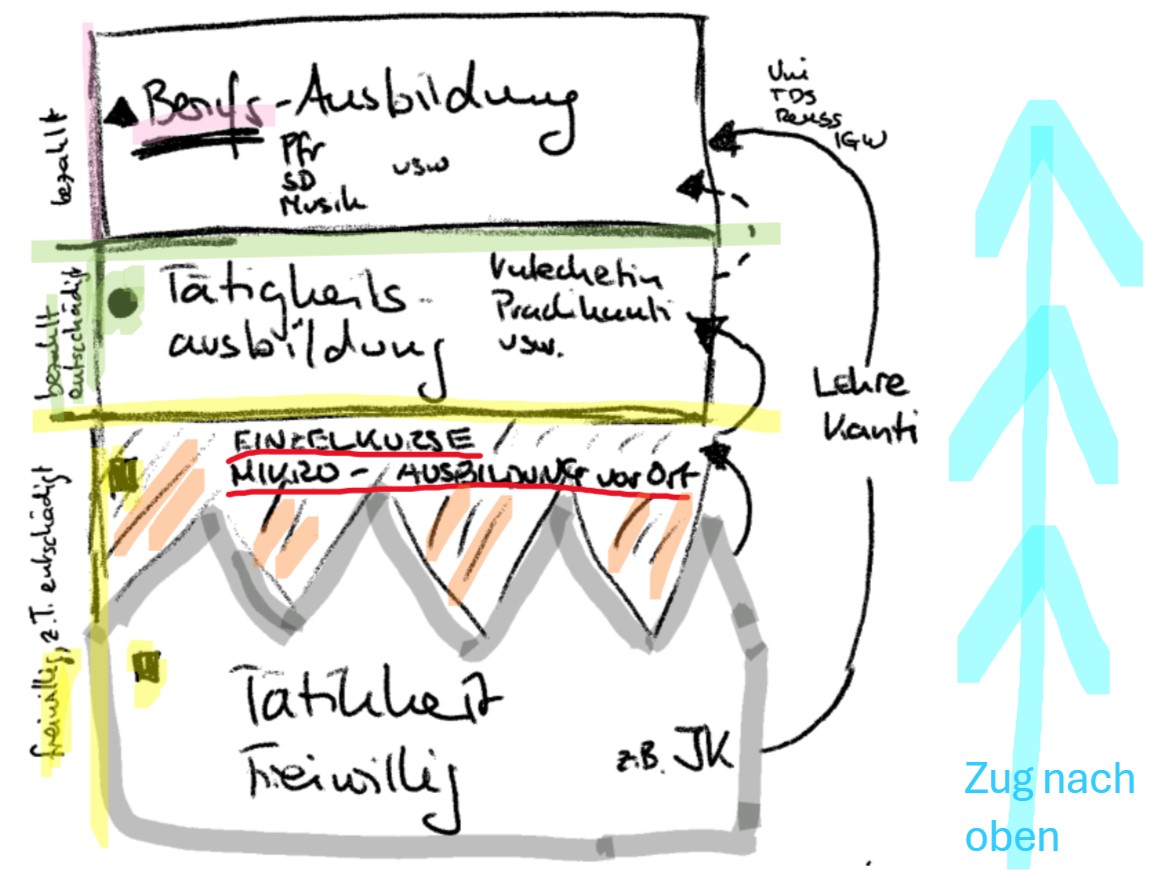 Berufs-Ausbildung
Pfr
SD
Musik
usw
bezahlt
Uni
TDS
Reuss
IGW
Tätigkeits-
ausbildung
Katechetin
Prädikanti
usw.
bezahlt
entschädigt
Lehre
Kanti
EINZELKURSE
MIKRO - AUSBILDUNG vor Ort
freiwillig, z.T. entschädigt
Tätikkeit
Freiwillig
z.B. JK
Zug nach
oben